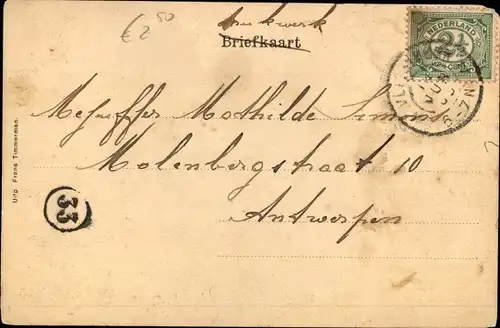 € 2 50
drukwerk
Briefkaart
NEDERLAND
2½
Mejuffer Mathilde Simons
Molenbergstraat 10
Antwerpen
33
Uitg. Frans Timmerman.